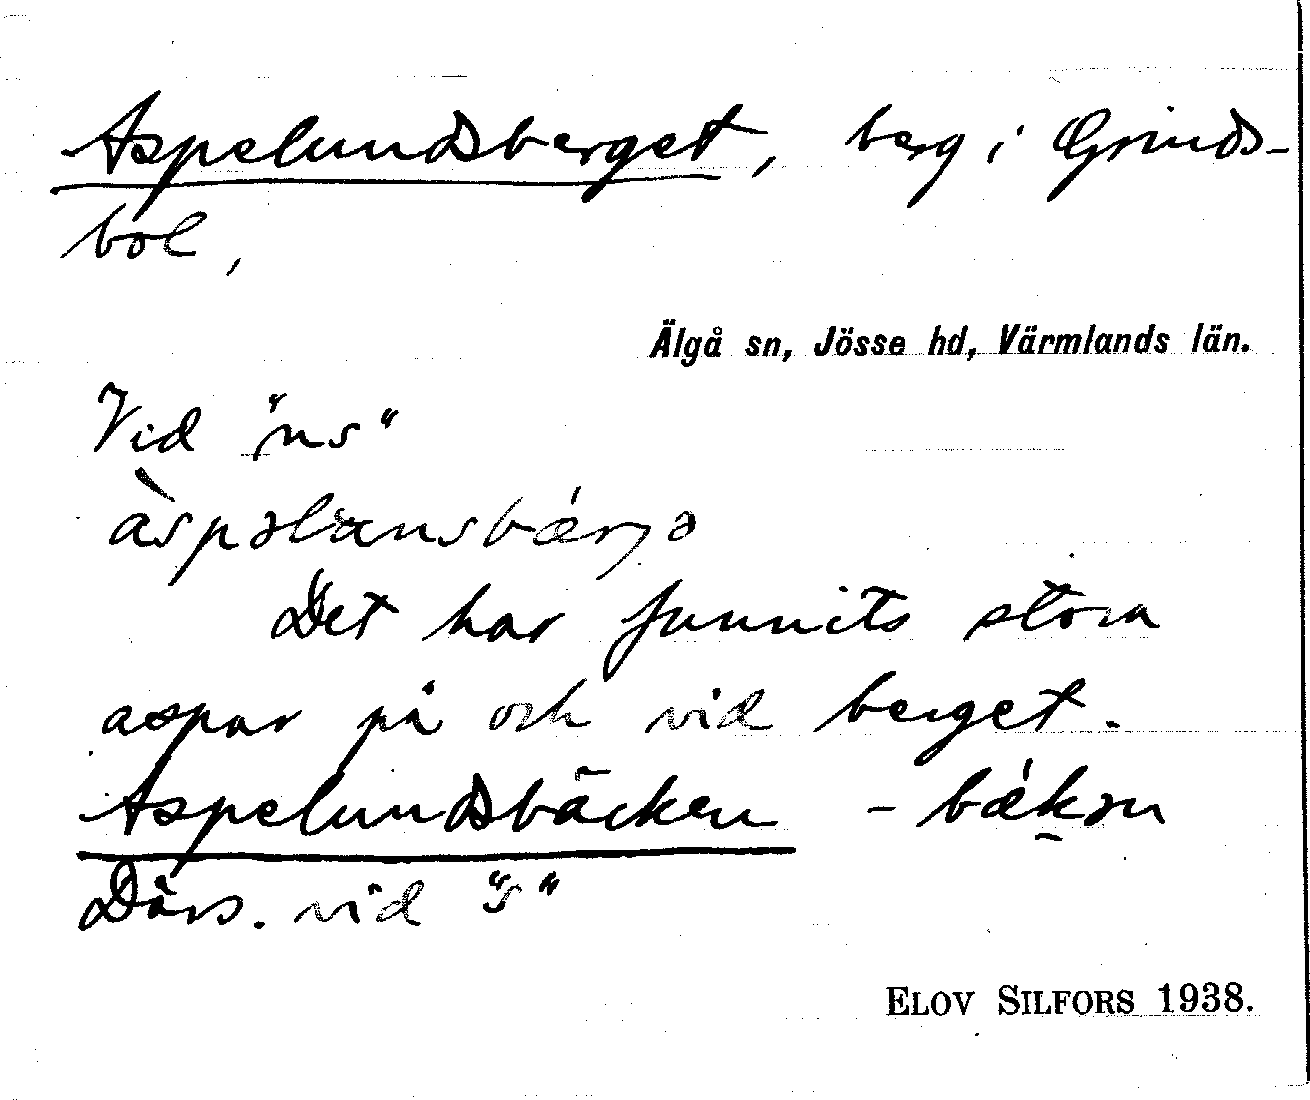 Aspelundsberget, berg i Grinds-
bol,
Älgå sn, Jösse hd, Värmlands län.
Vid "ns"
àspəlunsbǽrjə
Det har funnits stora
aspar på och vid berget.
Aspelundsbäcken - bǽkən
Därs. vid "s"
ELOV SILFORS 1938.